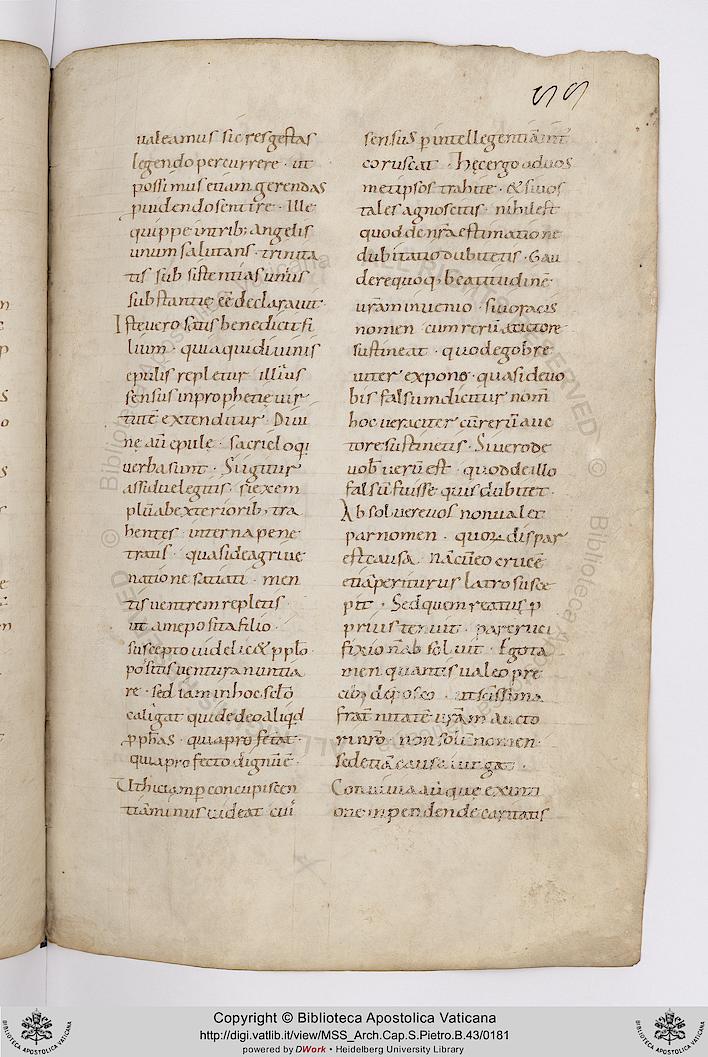 ualeamus sic res gestas
legendo percurrere · ut
possimus etiam gerendas
puidendo sentire · Ille
quippe intrib; angelis
unum salutans · trinita
tis subsistentias unius
substantie eē declarauit·
Iste uero satis benedicit fi
lium · quia qui diuinis
epulis repletur illius
sensus inprophetie uir
tutē extenditur · Diui
ne aū epule · sacri eloqi
uerba sunt · Si igitur
assidue legitis · si exem
plū abexteriorib; tra
hentes · interna pene
tratis · quasi de agri ue
natione satiati · men
tis uentrem repletis ·
ut ame posita filio
suscepto uidelic& pplo
positis uentura nuntia
re · sed iam in hoc sclo
caligat qui de deo aliqd
pphas · quia profetat ·
quia profecto dignū ē·
Ut hic iam p concupiscen
tiā minus uideat cui
sensus p intellegentiā int
coruscat · Hec ergo aduos
metipsos trahite · & si uos
tales agnoscitis · nihil est
quod de nra estimatione
dubitatio dubitetis · Gau
dere quoq; beatitudinē
urām inuenio · si uoracis
nomen cum rerū auctore
sustineat · quod ego bre
uiter expono · quasi de uo
bis falsum dicitur nom̄
hoc ueraciter cū rerū auc
tore sustinetis · Si uero de
uob uerū est · quod de illo
falsū fuisse quis dubitet ·
Absoluere uos non ualet
par nomen · quor dispar
est causa · nā cū eo crucē
etiā periturus latro susce
pit · Sed quem reatus p
prius tenuit · par cruci
fixio n̄ absoluit · Ego ta
men quantis ualeo pre
cib; dep osco · ut scissima
frat nitatē urām aucto
ri nrō · non solū nomen
sed etiā causa iungat ·
Conuiuia aū que ex inti
one inpendende caritatis
Copyright © Biblioteca Apostolica Vaticana
http://digi.vatlib.it/view/MSS_Arch.Cap.S.Pietro.B.43/0181
powered by DWork • Heidelberg University Library